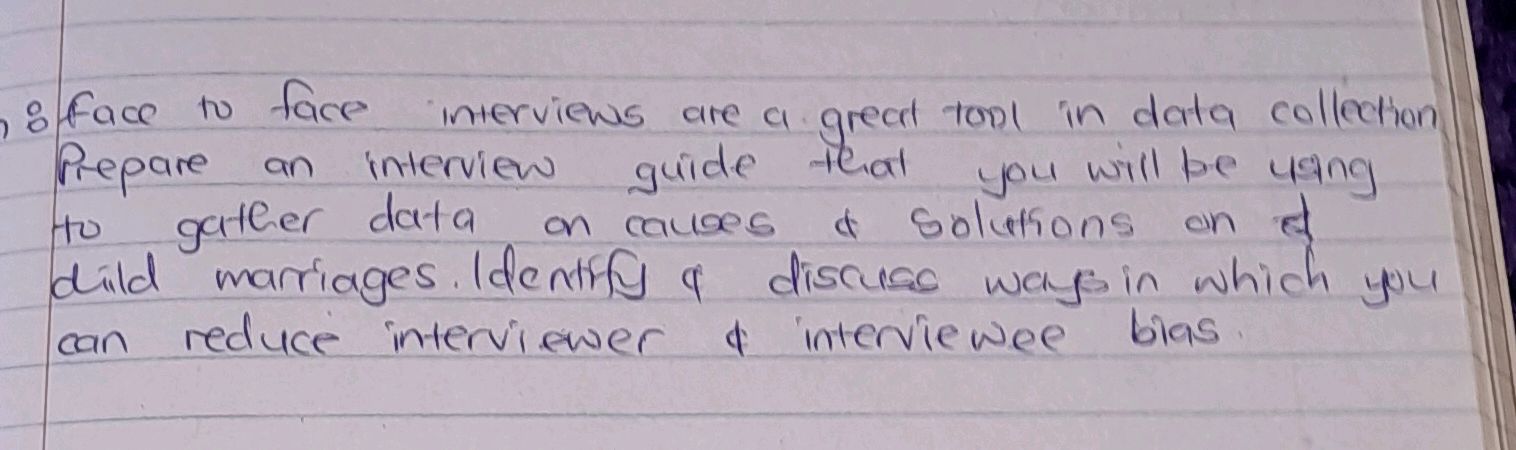 8 face to face interviews are a great tool in data collection
Prepare an interview guide that you will be using
to gather data on causes & solutions on
child marriages. Identify & discuss ways in which you
can reduce interviewer & interviewee bias.